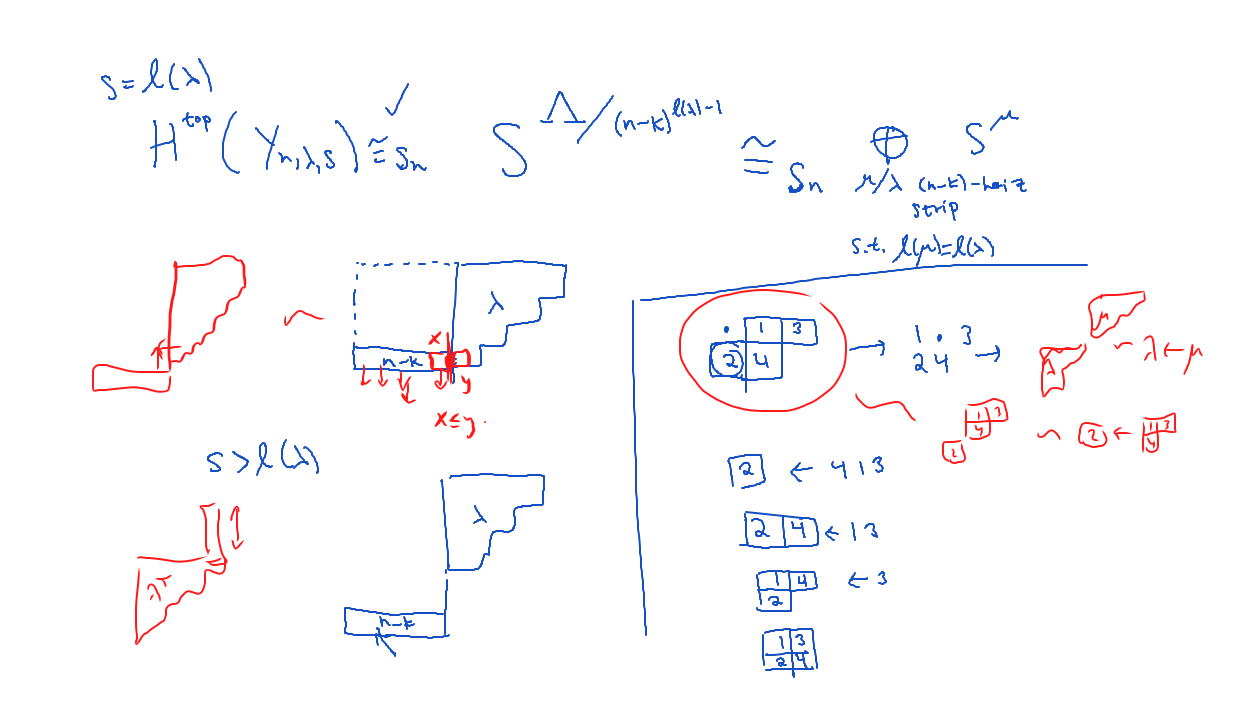 s = l(λ)
H^top (Y_{n,λ,s}) ≅_{S_n} ✓ S^{Λ/(n-k)^{l(λ)-1}} ≅_{S_n} ⊕ S^μ
μ/λ (n-k)-horiz
strip
s.t. l(μ)=l(λ)
~
λ
n-k
x
y
x≤y.
s > l(λ)
λ^T
λ
n-k
• 1 3
2 4
→ 1 • 3
2 4 →
μ
λ
~ λ ← μ
1 3
4
2
~ 2 ← 1 3
4
2 ← 4 1 3
2 4 ← 1 3
1 4 ← 3
2
1 3
2 4